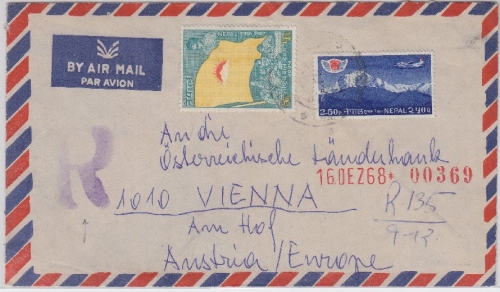 BY AIR MAIL
PAR AVION
NEPAL
2.50
NEPAL २.५०
R
An die
Österreichische Länderbank
16.DEZ.68* 00369
1010 VIENNA
R 135
9-12
Am Hof
Austria/Europe